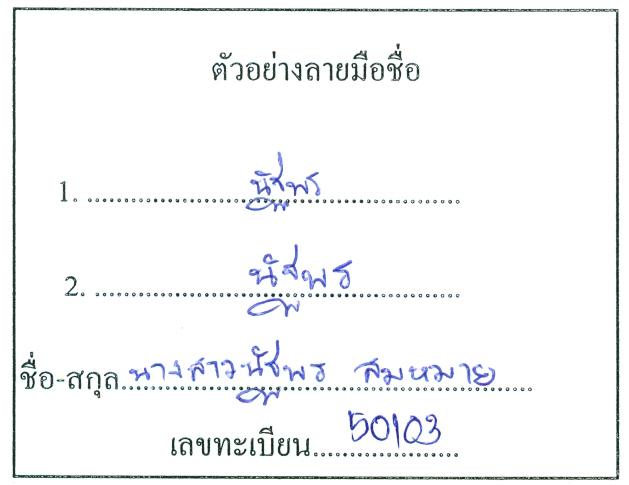 ตัวอย่างลายมือชื่อ
1. นัฐพร
2. นัฐพร
ชื่อ-สกุล นางสาวนัฐพร สมหมาย
เลขทะเบียน 50103